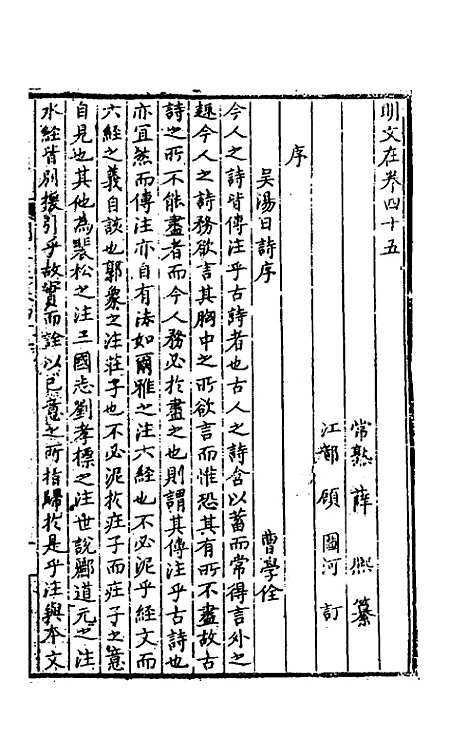 明文在卷四十五
常熟薛熙纂
江都顧圖河訂
序
吴湯日詩序 曹學佺
今人之詩皆傳注乎古詩者也古人之詩含以蓄而常得言外之
趣今人之詩務欲言其胸中之所欲言而惟恐其有所不盡故古
詩之所不能盡者而今人務必於盡之也則謂其傳注乎古詩也
亦宜然而傳注亦自有法如爾雅之注六經也不必泥乎經文而
六經之義自該也郭象之注莊子也不必泥於莊子而莊子之意
自見也其他為裴松之注三國志劉孝標之注世說酈道元之注
水經皆別援引乎故實而詮以己意之所指歸於是乎注與本文